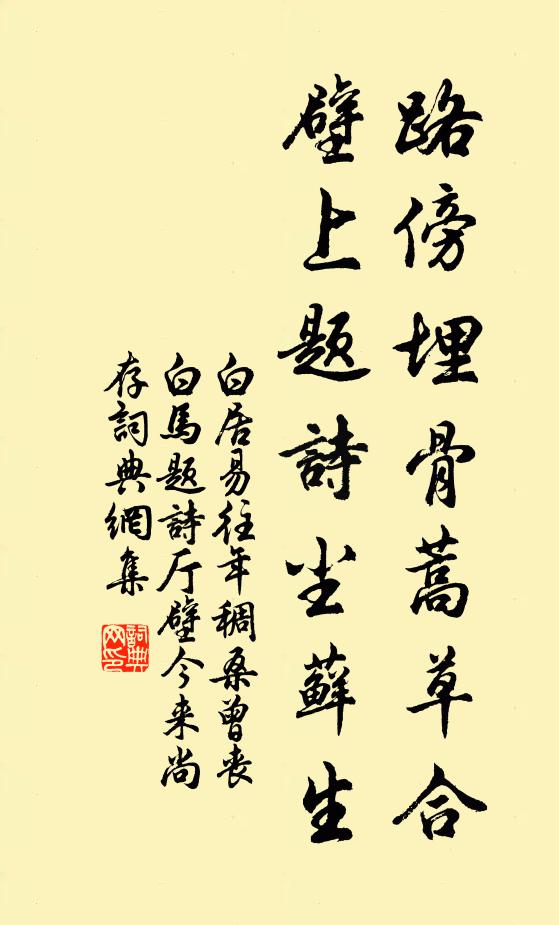 路傍埋骨蒿草合
壁上题詩尘蘚生
白居易往年稠桑曾丧
白馬题詩厅壁今来尚
存詞典網集
詞典网印